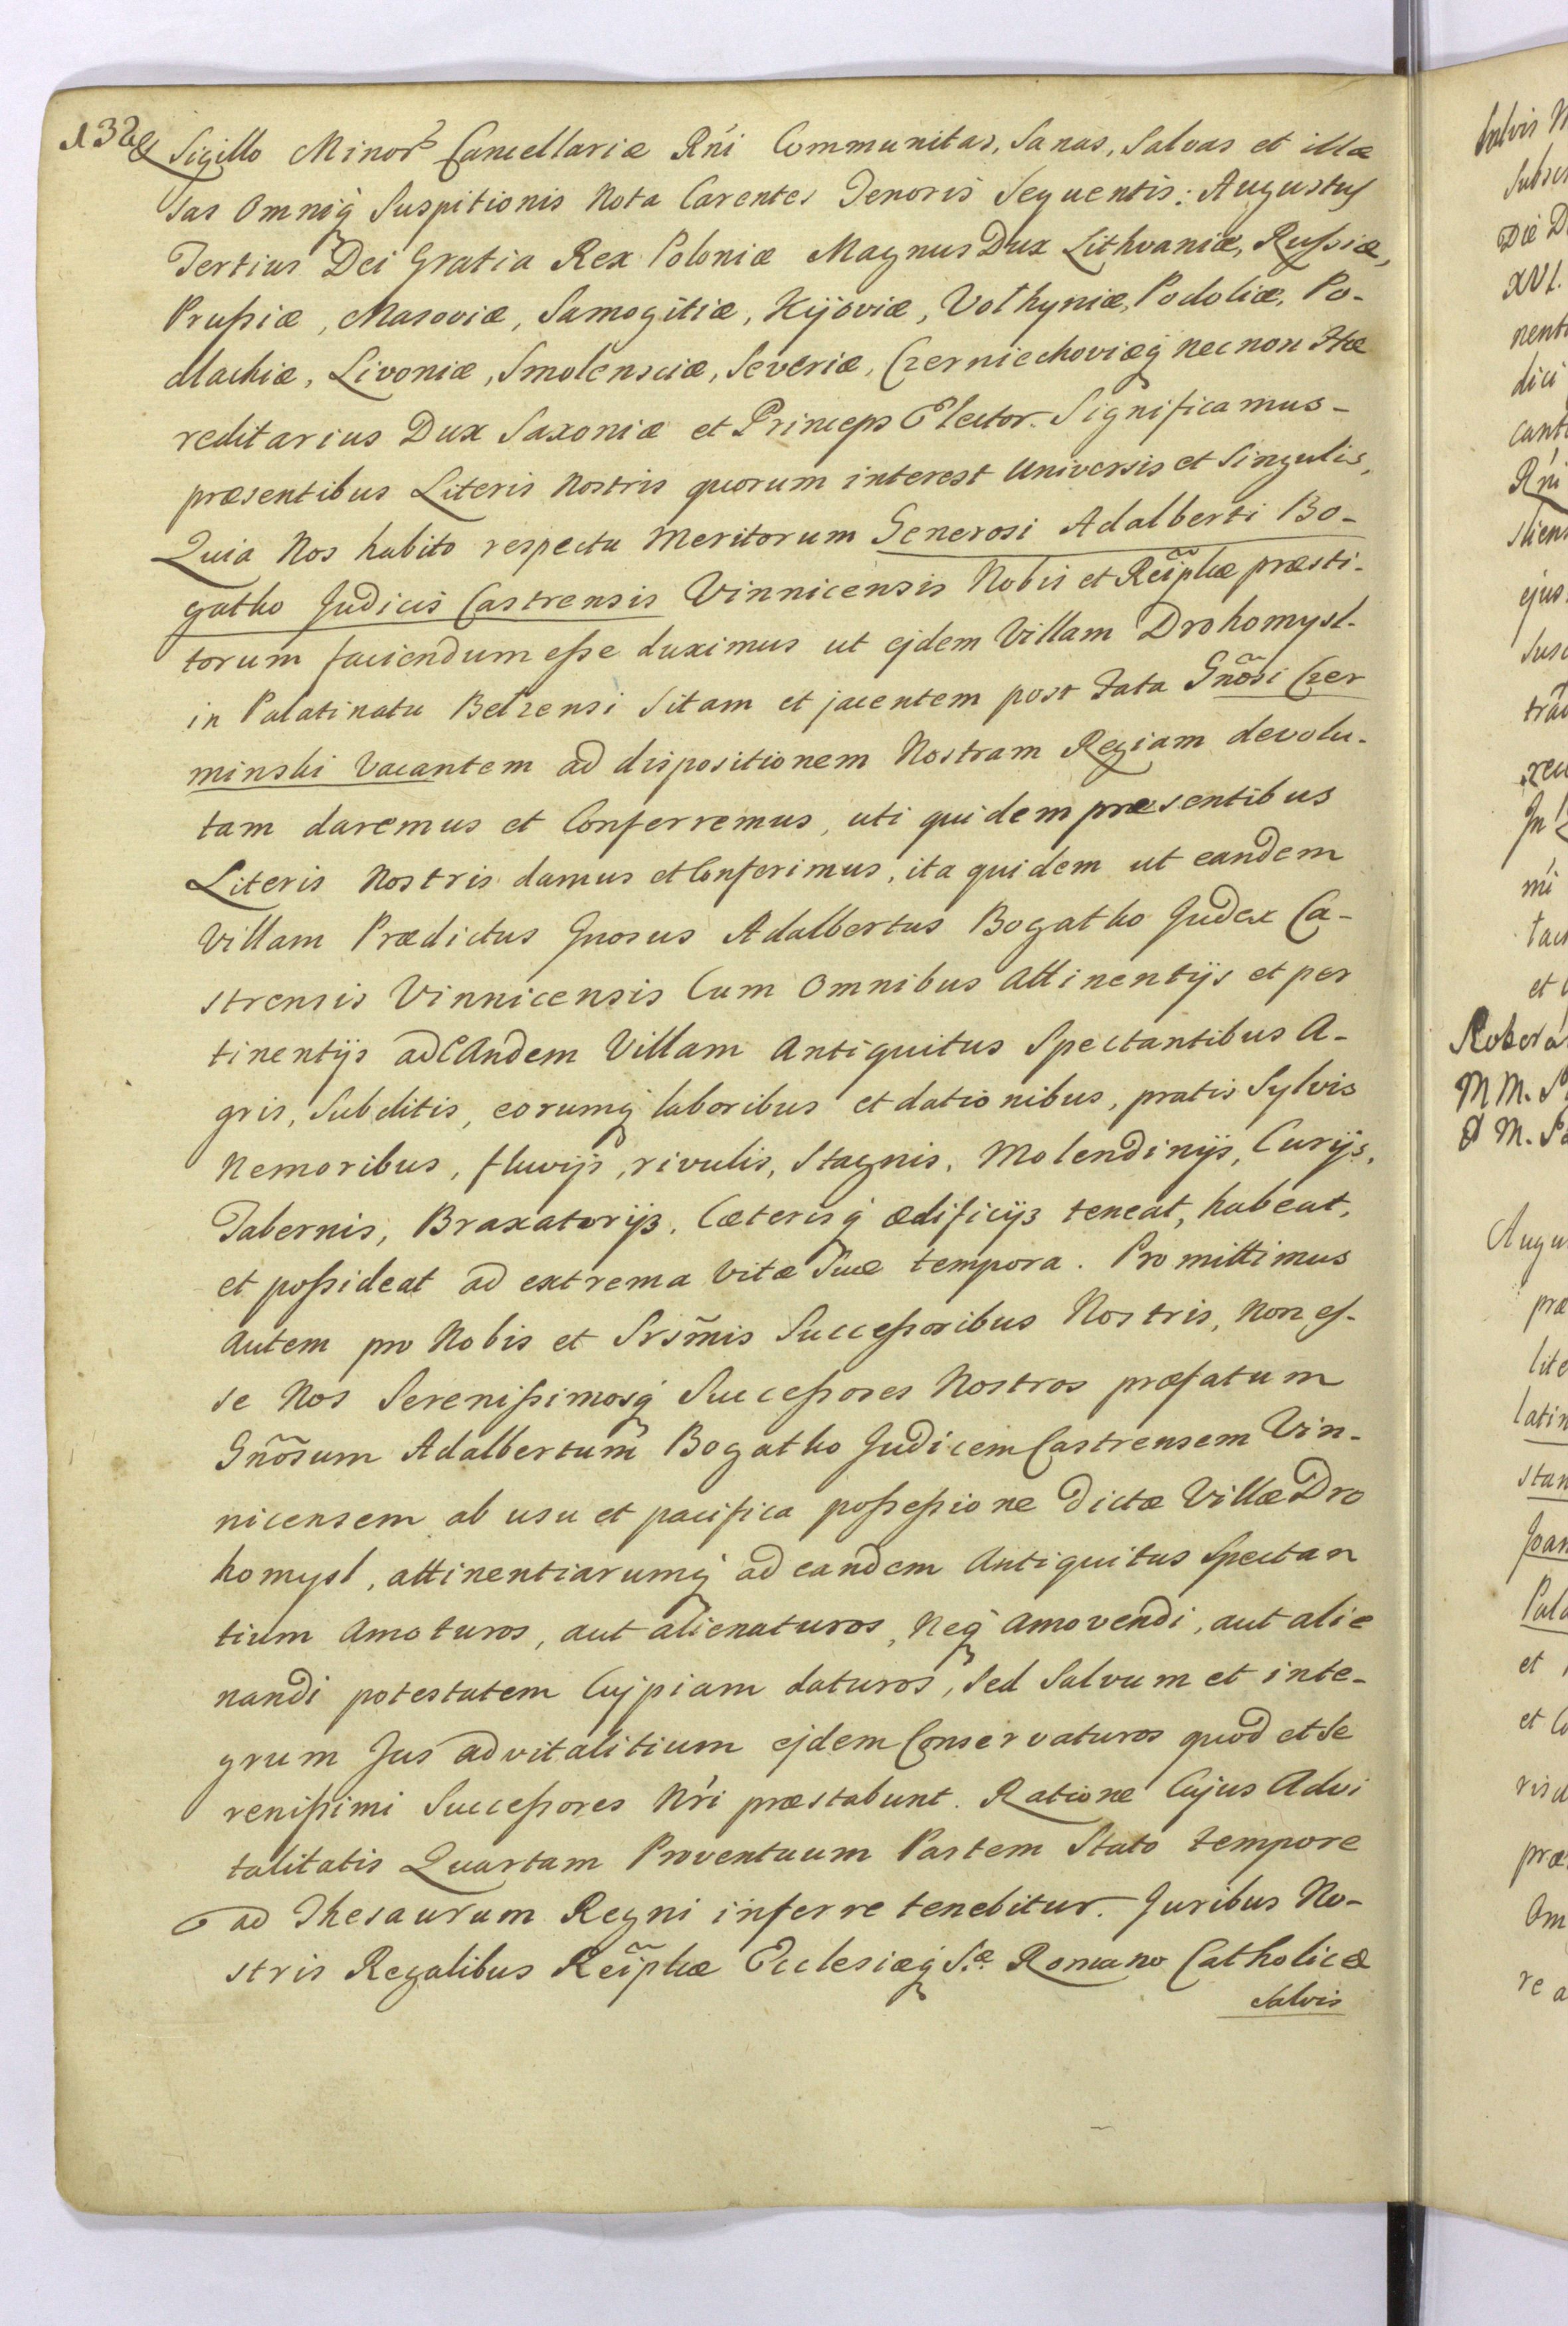 132
& Sigillo Minorꝭ Cancellariæ Rńi Communitas, Sanas, Salvas et illæ
sas Omniq́ Suspitionis Nota Carentes Tenoris Sequentis: Augustus
Tertius Dei Gratia Rex Poloniæ Magnus Dux Lithvaniæ, Rußiæ,
Prußiæ, Masoviæ, Samogitiæ, Kijoviæ, Volhyniæ, Podoliæ, Po-
dlachiæ, Livoniæ, Smolensciæ, Severiæ, Czerniechoviæq́ nec non Hæ
reditarius Dux Saxoniæ et Princeps Elector. Significamus-
præsentibus Literis Nostris quorum interest Universis et Singulis,
Quia Nos habito respectu Meritorum Generosi Adalberti Bo-
gatko Judicis Castrensis Vinnicensis Nobis et Reĩplæ præsti-
torum faciendum eße duximus ut ejdem Villam Drohomysl-
in Palatinatu Belzensi Sitam et jacentem post Fata Gñosi Czer
minski Vacantem ad dispositionem Nostram Regiam devolu-
tam daremus et Conferremus, uti quidem præsentibus
Literis Nostris damus et Conferimus, ita quidem ut eandem
Villam Prædictus Gnosus Adalbertus Bogatko Judex Ca-
strensis Vinnicensis Cum Omnibus Attinentijs et per
tinentijs ad eandem Villam Antiquitus Spectantibus A-
gris, Subditis, eorumq́ laboribus et dationibus, pratis Sylvis
Nemoribus, fluvijs, rivulis, Stagnis, Molendinijs, Curijs,
Tabernis, Braxatorijs, Cæterisq́ ædificijs teneat, habeat,
et poßideat ad extrema Vitæ Suæ tempora. Promittimus
Autem pro Nobis et Srsm̃is Succeßoribus Nostris, Non es-
se Nos Serenißimosq́ Succeßores Nostros præfatum
Gñosum Adalbertum Bogatko Judicem Castrensem Vin-
nicensem ab usu et pacifica poßeßione dictæ Villæ Dro
homysl, attinentiarumq́ ad eandem Antiquitus Spectan
tium Amoturos, aut alienaturos, Neq́ Amovendi, aut alie
nandi potestatem Cujpiam daturos, Sed Salvum et inte-
grum Jus advitalitium ejdem Conservaturos quod et Se
renißimi Succeßores Nŕi præstabunt. Ratione Cujus Advi
talitatis Quartam Proventuum Partem Stato tempore
ad Thesaurum Regni inferre tenebitur. Juribus No-
stris Regalibus Reĩplæ Ecclesiæq́ S.æ Romano Catholicæ
Salvis